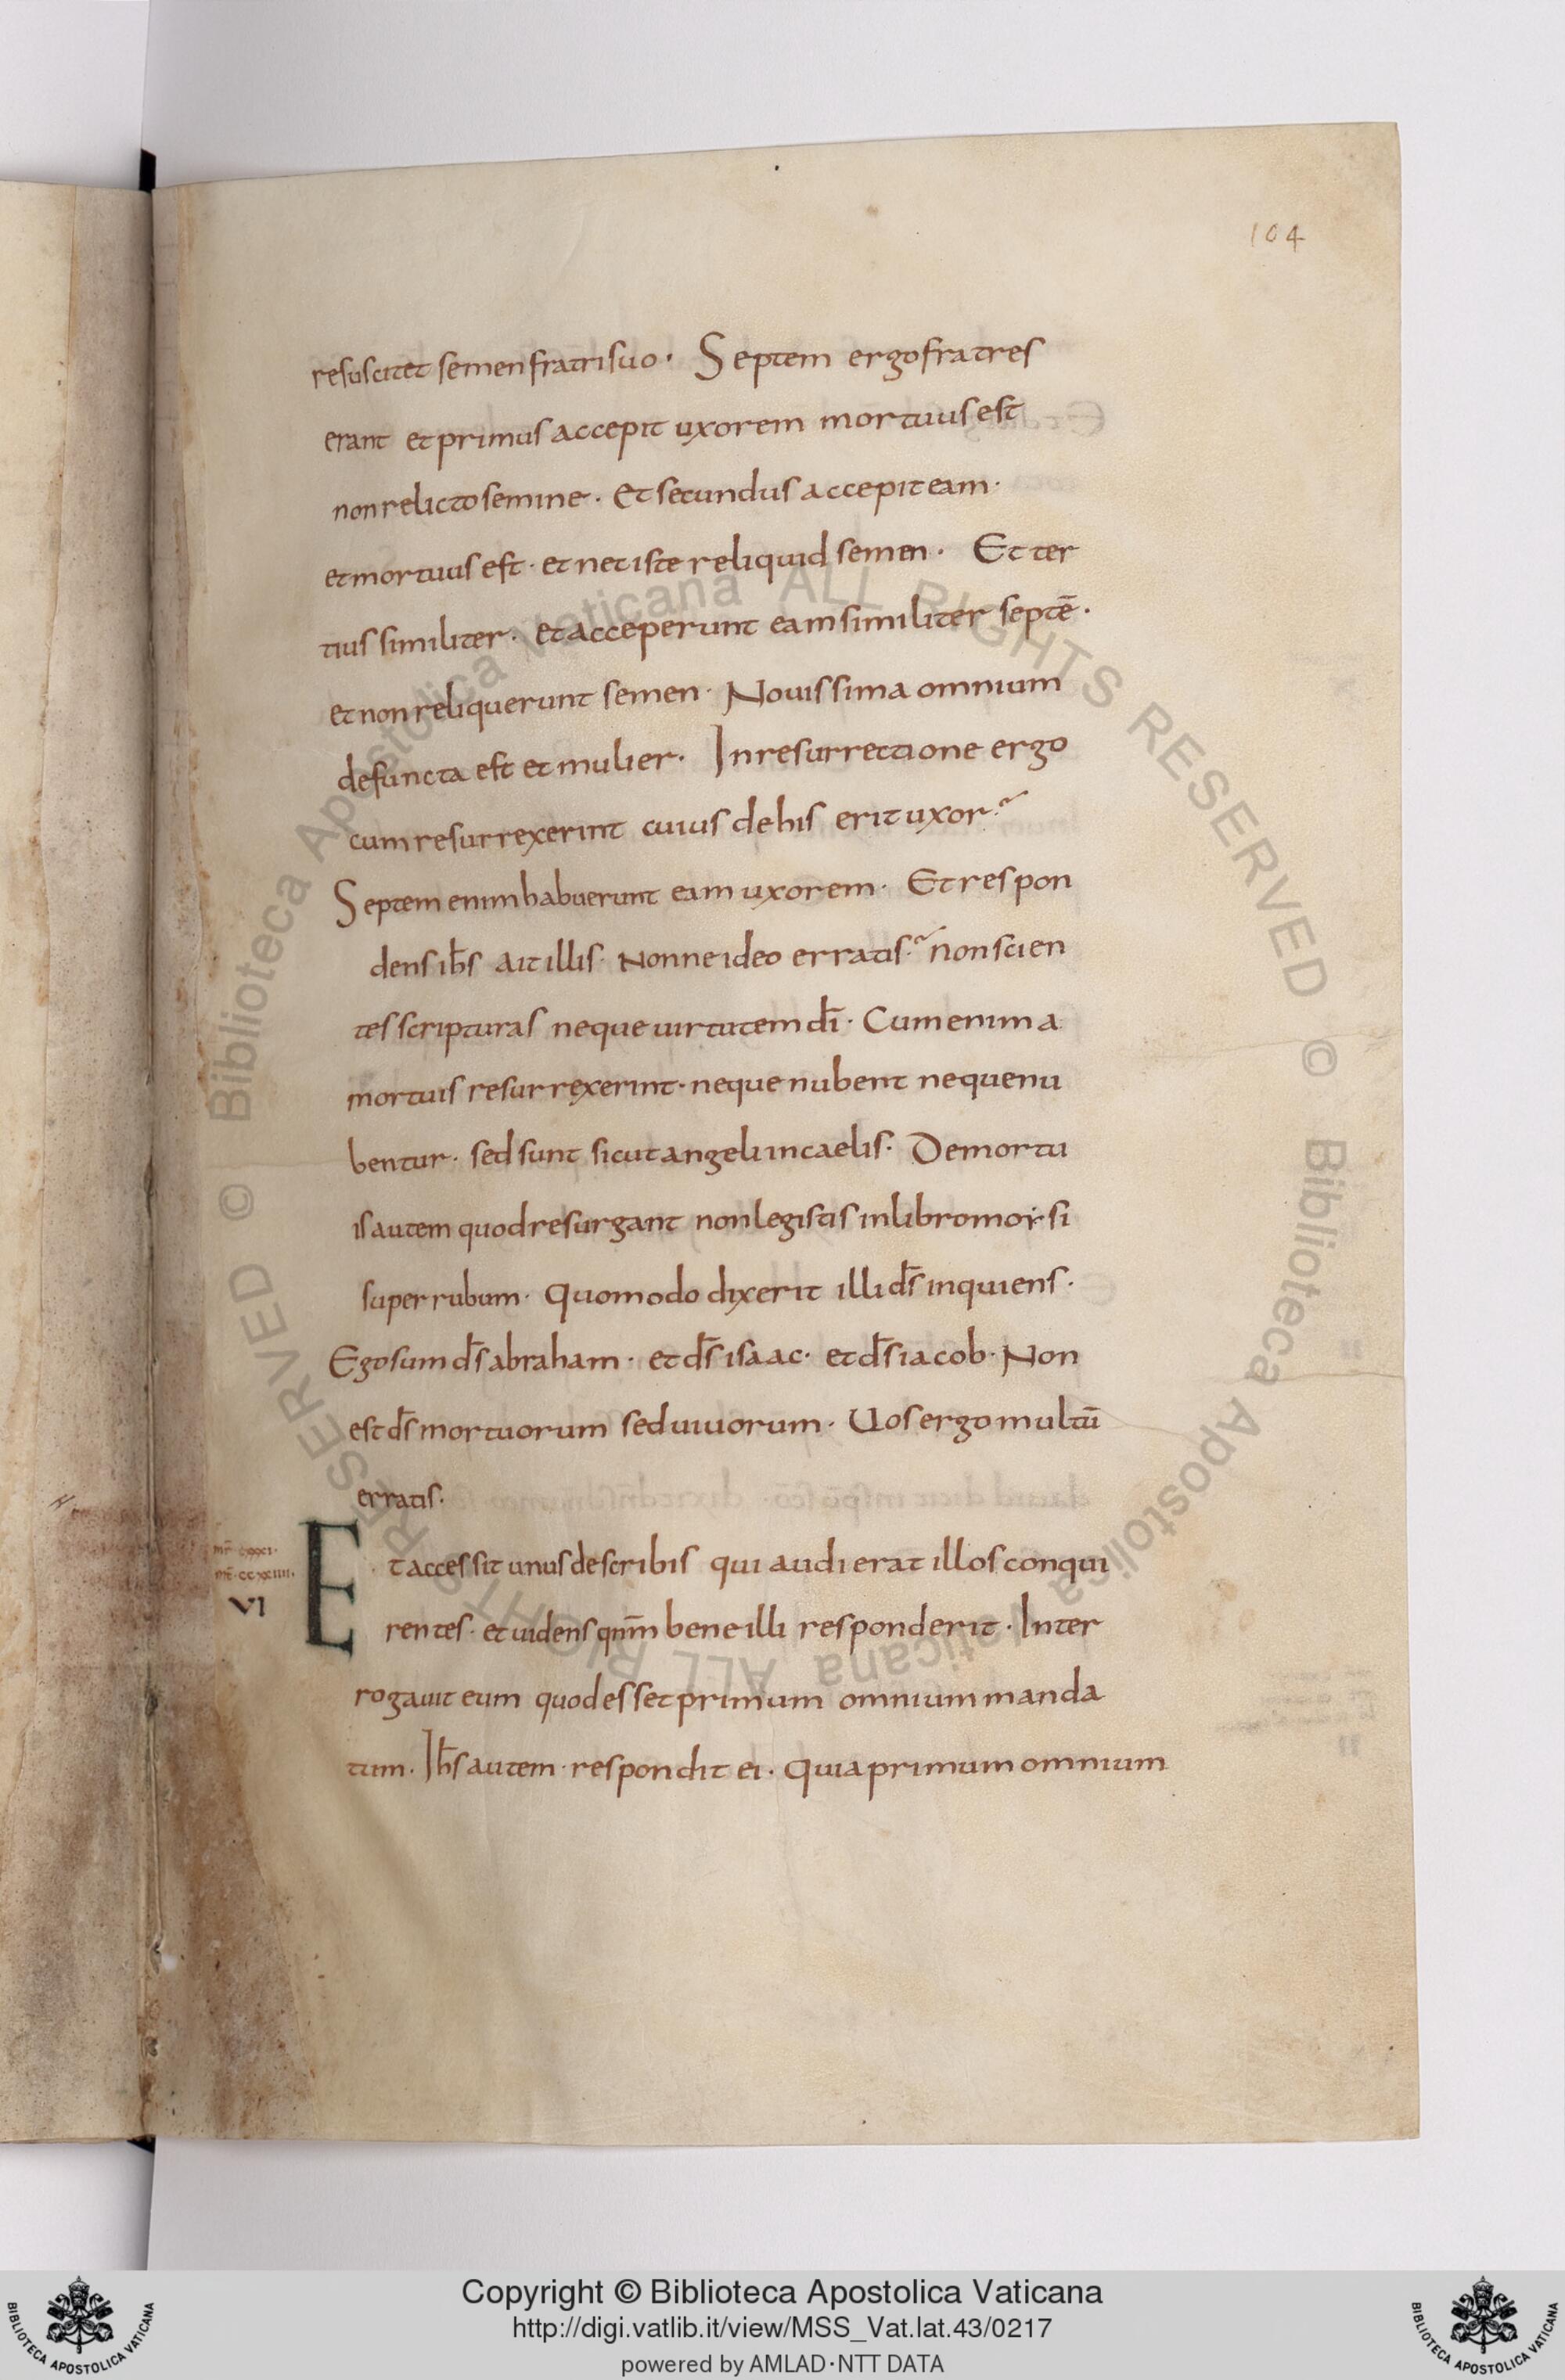 104
resuscitet semen fratri suo · Septem ergo fratres
erant et primus accepit uxorem mortuus est
non relicto semine · Et secundus accepit eam ·
et mortuus est · et nec iste reliquid semen · Et ter
tius similiter · et acceperunt eam similiter septē ·
et non reliquerunt semen · Nouissima omnium
defuncta est et mulier · In resurrectione ergo
cum resurrexerint cuius de his erit uxor?
Septem enim habuerunt eam uxorem · Et respon
dens ih̄s ait illis · Nonne ideo erratis? non scien
tes scripturas neque uirtutem dī · Cum enim a
mortuis resurrexerint · neque nubent neque nu
bentur · sed sunt sicut angeli in caelis · De mortu
is autem quod resurgant non legistis in libro moysi
super rubum · Quomodo dixerit illi d̄s inquiens ·
Ego sum d̄s abraham · et d̄s isaac · et d̄s iacob · Non
est d̄s mortuorum sed uiuorum · Uos ergo multū
erratis ·
VI
Et accessit unus de scribis qui audierat illos conqui
rentes · et uidens qnm̄ bene illi responderit · Inter
rogauit eum quod esset primum omnium manda
tum · Ih̄s autem · respondit ei · Quia primum omnium
© Biblioteca Apostolica Vaticana ALL RIGHTS RESERVED
© Biblioteca Apostolica Vaticana ALL RIGHTS RESERVED
Copyright © Biblioteca Apostolica Vaticana
http://digi.vatlib.it/view/MSS_Vat.lat.43/0217
powered by AMLAD·NTT DATA
BIBLIOTECA APOSTOLICA VATICANA
BIBLIOTECA APOSTOLICA VATICANA